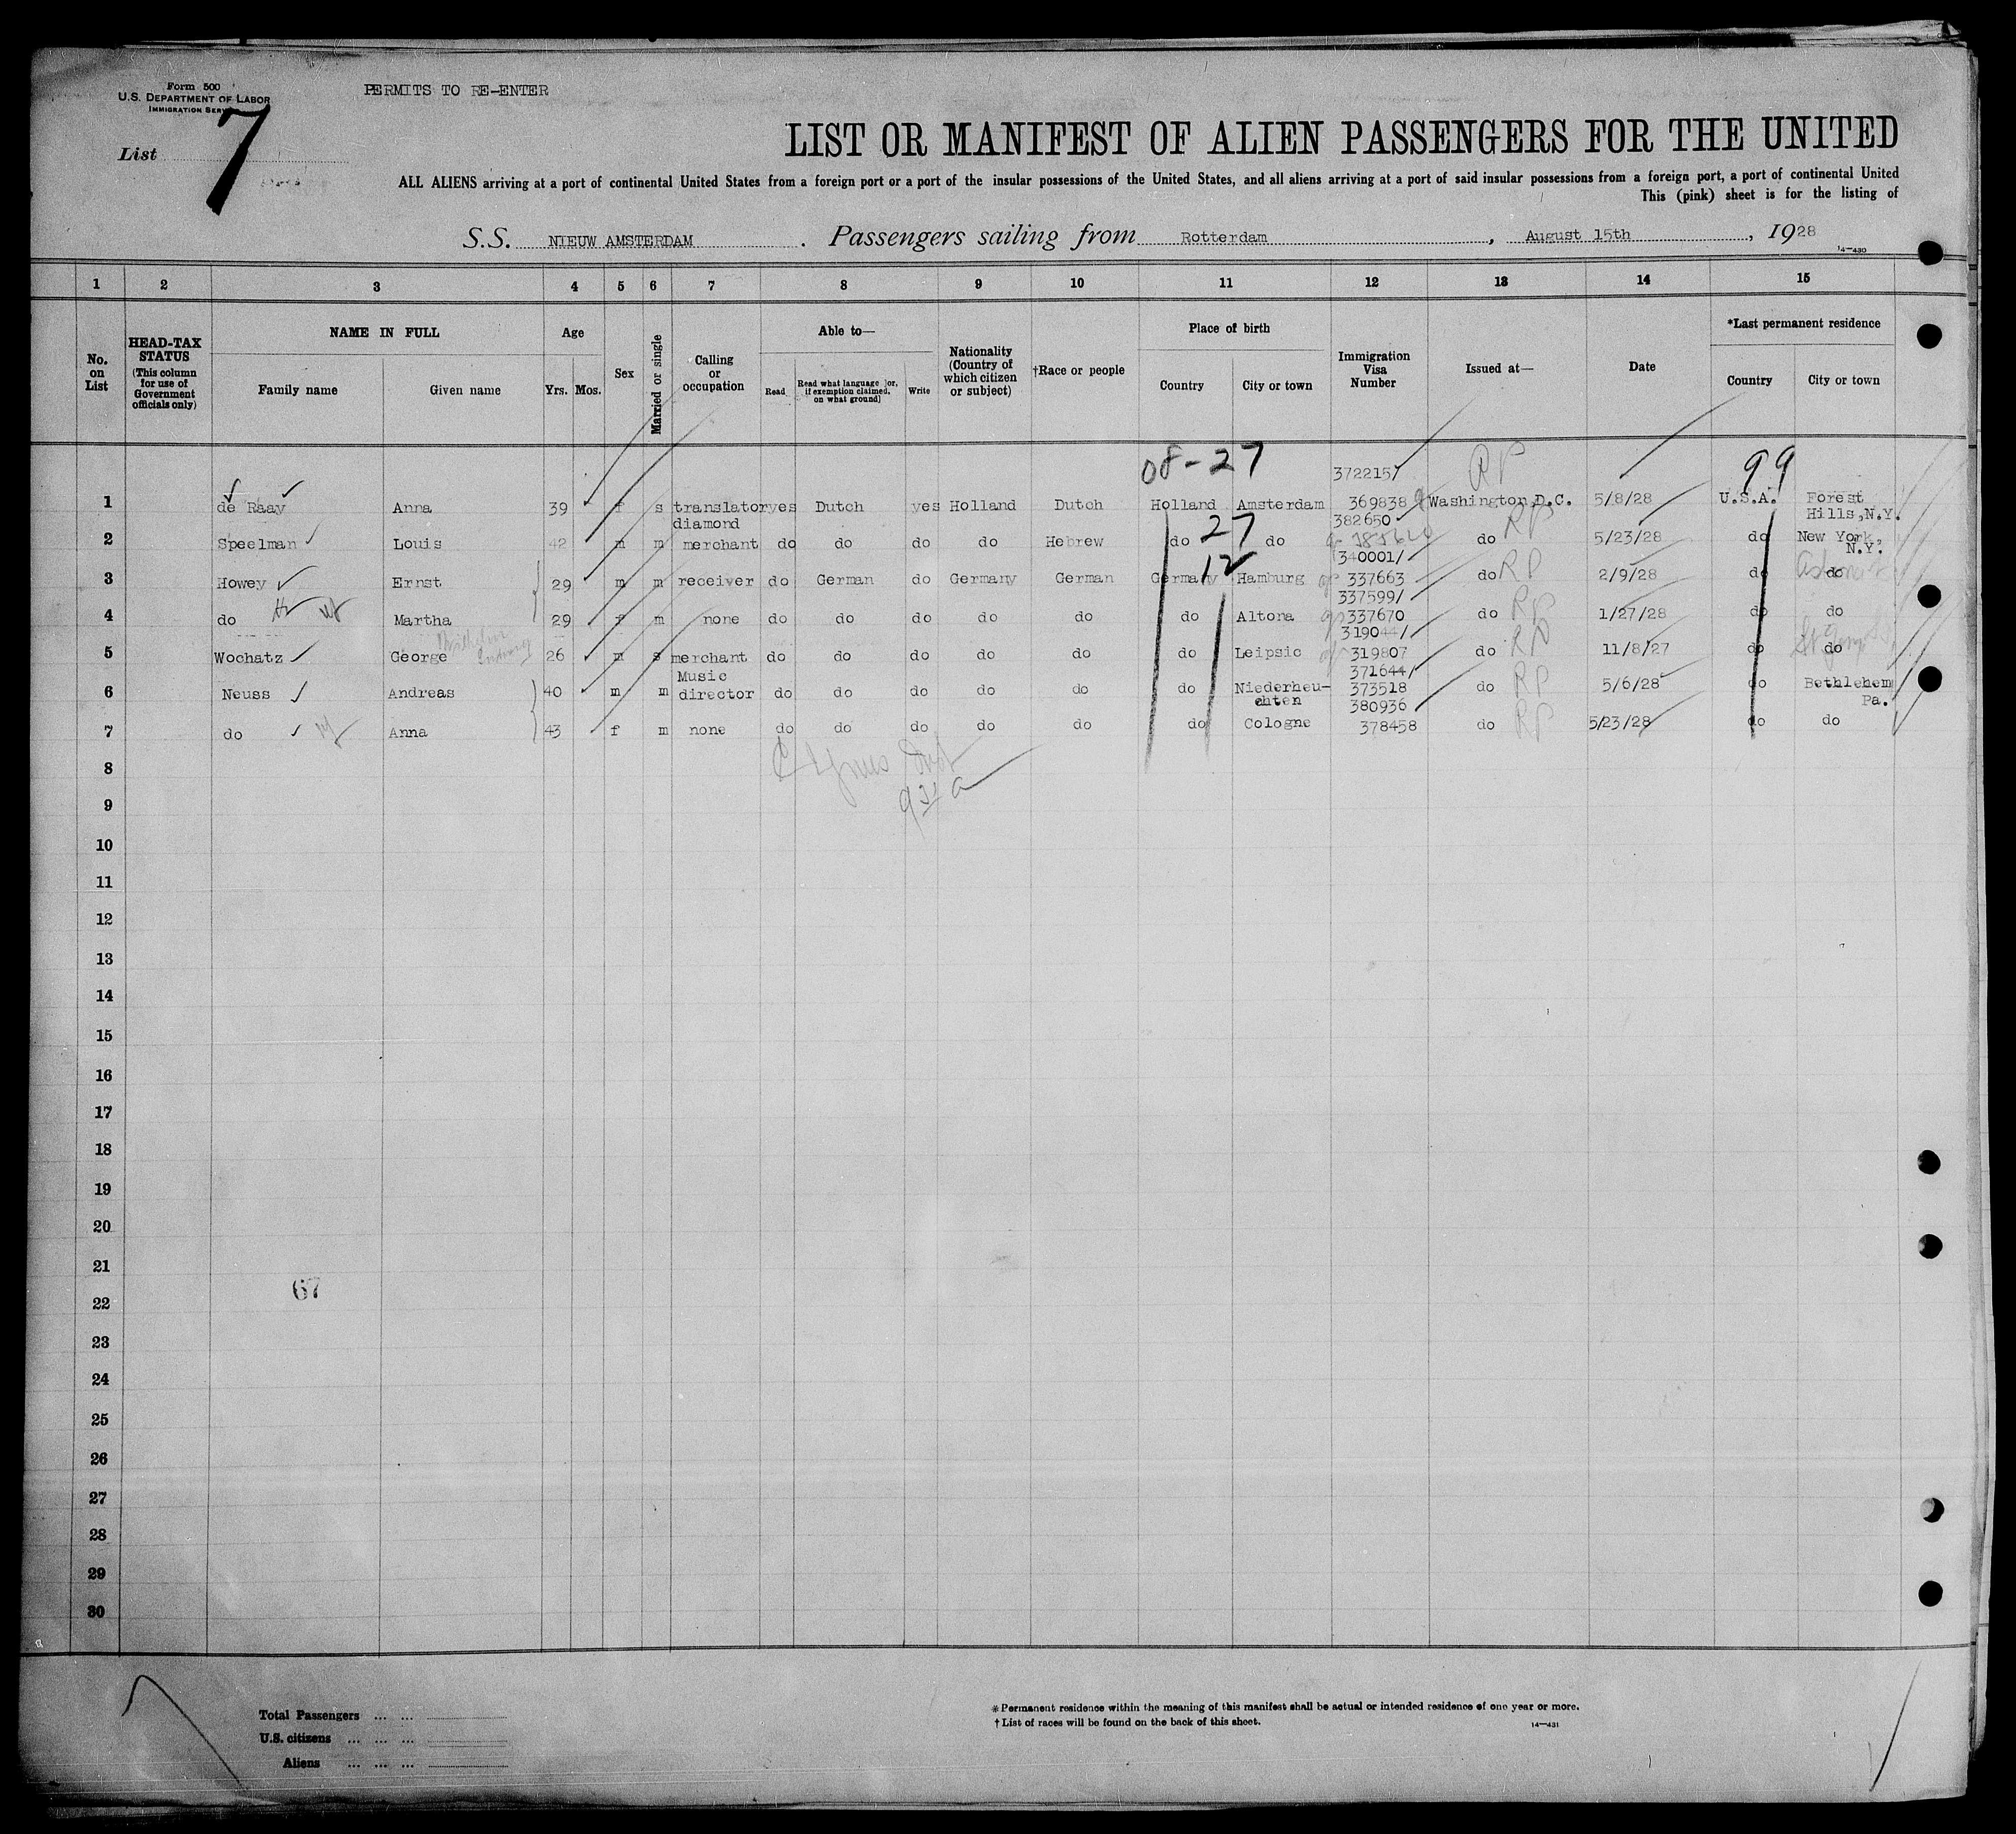 Form 500
U.S. DEPARTMENT OF LABOR
IMMIGRATION
PERMITS TO RE-ENTER
List 7
LIST OR MANIFEST OF ALIEN PASSENGERS FOR THE UNITED
ALL ALIENS arriving at a port of continental United States from a foreign port or a port of the insular possessions of the United States, and all aliens arriving at a port of said insular possessions from a foreign port, a port of continental United
This (pink) sheet is for the listing of
S.S. NIEUW AMSTERDAM. Passengers sailing from Rotterdam, August 15th, 1928
14—430
1 2 3 4 5 6 7 8 9 10 11 12 13 14 15
No. on List
HEAD-TAX STATUS (This column for use of Government officials only)
NAME IN FULL
Family name Given name
Age
Yrs. Mos.
Sex
Married or single
Calling or occupation
Able to—
Read Read what language [or, if exemption claimed, on what ground] Write
Nationality (Country of which citizen or subject)
†Race or people
Place of birth
Country City or town
Immigration Visa Number
Issued at—
Date
*Last permanent residence
Country City or town
08-27 372215/ RP 99
1 de Raay Anna 39 f s translator yes Dutch yes Holland Dutch Holland Amsterdam 369838 Washington,D.C. 5/8/28 U.S.A. Forest Hills,N.Y.
diamond 27 382650 RP
2 Speelman Louis 42 m m merchant do do do do Hebrew do do do 5/23/28 do New York, N.Y.
12 340001/
3 Howey Ernst 29 m m receiver do German do Germany German Germany Hamburg 337663 do RP 2/9/28 do do
337599/
4 do Martha 29 f m none do do do do do do Altona 337670 do RP 1/27/28 do do
319044/
5 Wochatz George 26 m s merchant do do do do do do Leipsic 319807 do RP 11/8/27 do do
Music 371644/
6 Neuss Andreas 40 m m director do do do do do do Niederheu-chten 373518 do RP 5/6/28 do Bethlehem Pa.
380936
7 do Anna 43 f m none do do do do do do Cologne 378458 do RP 5/23/28 do do
8
9
10
11
12
13
14
15
16
17
18
19
20
21
67
22
23
24
25
26
27
28
29
30
Total Passengers ... ...
U.S. citizens ... ... ...
Aliens ... ... ...
*Permanent residence within the meaning of this manifest shall be actual or intended residence of one year or more.
†List of races will be found on the back of this sheet.
14—431